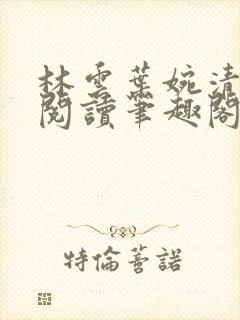 林雲葉婉清
閱讀筆趣閣
特倫蓍諾